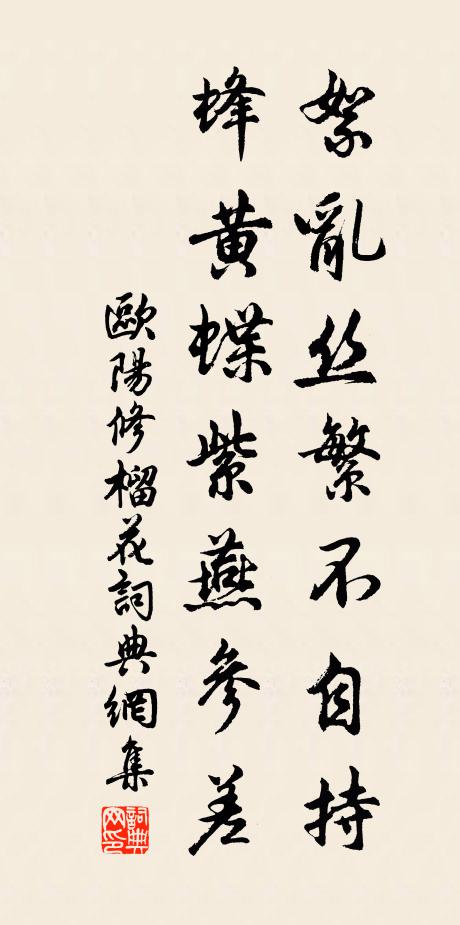 絮亂丝繁不自持
蜂黃蝶紫燕參差
歐陽修榴花詞典網集
詞典網印